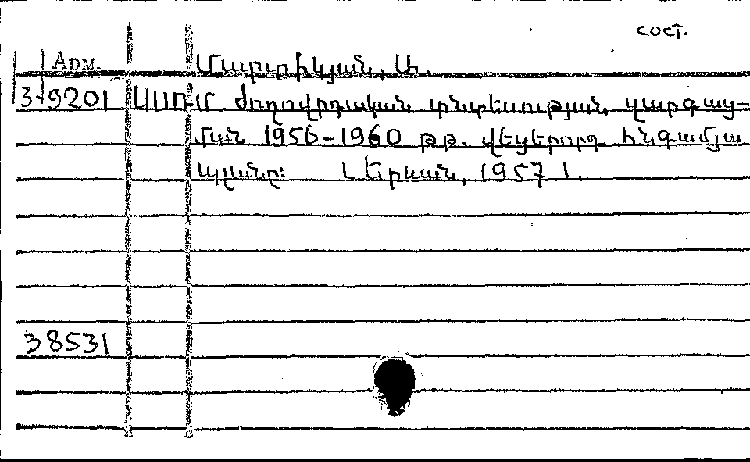 сост.
Арм. Մարտիկյան, Ա.
3-9201 ՍՍՌՄ ժողովրդական տնտեսության զարգաց-
ման 1956-1960 թթ. վեցերորդ հնգամյա
պլանը: Երևան, 1957 ։
38531